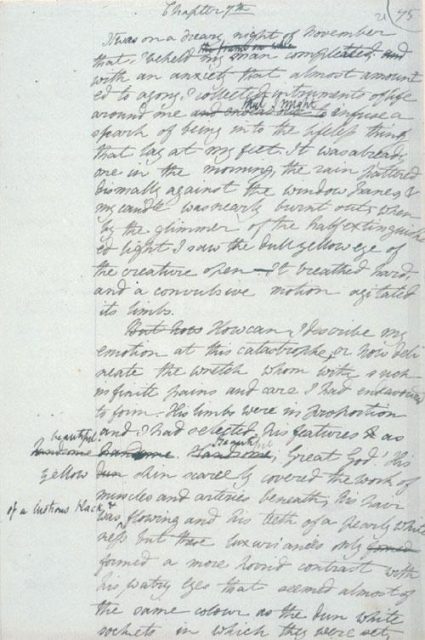 Chapter 7th
21 75
It was on a dreary night of November
the frame on whic
that I beheld my man compleated and
with an anxiety that almost amount
ed to agony, I collected instruments of life
that I might
around me and to infuse a
spark of being into the lifeless thing
that lay at my feet. It was already
one in the morning, the rain pattered
dismally against the window panes, &
my candle was nearly burnt out, when
by the glimmer of the half extinguish
ed light I saw the dull yellow eye of
the creature open - It breathed hard,
and a convulsive motion agitated
its limbs.
But how How can I describe my
emotion at this catastrophe, or how deli
neate the wretch whom with such
infinite pains and care I had endeavoured
to form. His limbs were in proportion
and I had selected his features & as
beautiful.
handsome handsome. Handsome, Beautiful, Great God! His
yellow dun skin scarcely covered the work of
muscles and arteries beneath; his hair
of a lustrous black, &
was flowing and his teeth of a pearly white
ness but these luxuriancies only formed
formed a more horrid contrast with
his watry eyes that seemed almost of
the same colour as the dun white
sockets in which they were set,